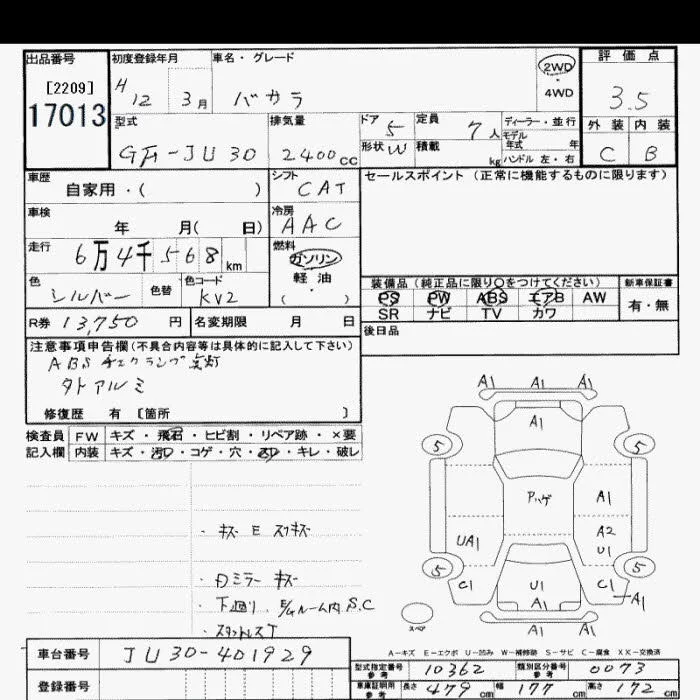 出品番号
[2209]
17013
初度登録年月
H12 3月
車名・グレード
バサラ
2WD
・
4WD
評価点
3.5
外装 内装
C B
型式
GF-JU30
排気量
2400cc
ドア 5
形状 W
定員 7人
積載 kg
ディーラー・並行
モデル年式 年
ハンドル 左・右
車歴
自家用・( )
シフト
CAT
車検
年 月( 日)
冷房
AAC
走行
6万4千568km
燃料
ガソリン
軽油
( ・ )
色
シルバー
色替
色コード
KV2
R券 13,750円
名変期限 月 日
セールスポイント (正常に機能するものに限ります)
装備品(純正品に限り○をつけてください)
PS PW ABS エアB AW
SR ナビ TV カワ
新車保証書
有・無
後日品
注意事項申告欄(不具合内容等は具体的に記入して下さい)
ABSチェックランプ点灯
タトアルミ
修復歴 有 [箇所 ]
検査員 FW キズ・飛石・ヒビ割・リペア跡・×要
記入欄 内装 キズ・汚レ・コゲ・穴・スレ・キレ・破レ
・キズ E スリキズ
・Dミラー キズ
・下廻り、E/Gルーム内 S.C
A1 A1 A1
A1
5 5
Pハゲ A1
UA1 A2
U1
5 5
C1 U1 C1
A1 A1
A1 A1
スペア
A-キズ E-エクボ U-凹み W-補修跡 S-サビ C-腐食 XX-交換済
車台番号 JU30-401929
登録番号
型式指定番号 参考 10362
類別区分番号 参考 0073
車庫証明用 参考 長さ 479cm 幅 177cm 高さ 172cm